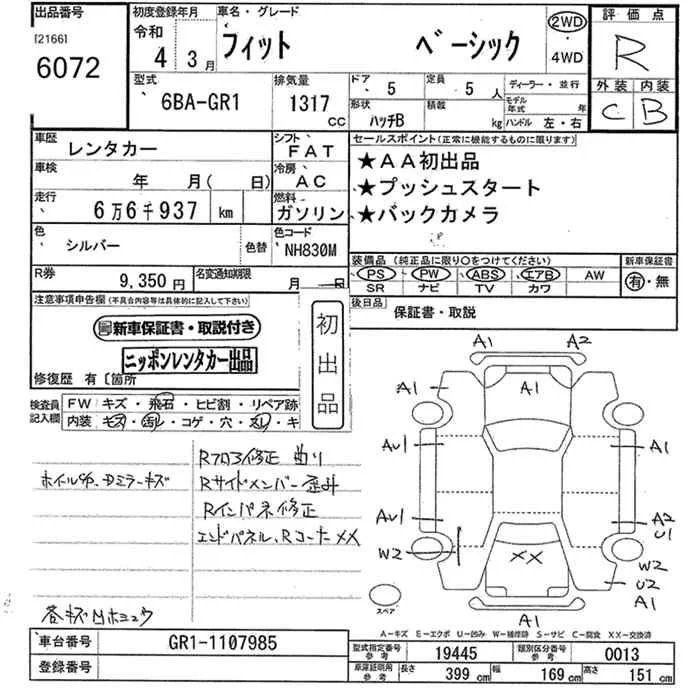 出品番号
[2166]
6072
初度登録年月
令和
4年 3月
車名・グレード
フィット ベーシック
2WD
・
4WD
評価点
R
外装 内装
C B
型式
6BA-GR1
排気量
1317
CC
ドア 5
定員 5人
ディーラー・並行
形状 ハッチB
積載 kg
モデル年式 年
ハンドル 左・右
車歴
レンタカー
シフト
FAT
車検
年 月( 日)
冷房
AC
走行
6万6千937 km
燃料
ガソリン
色
シルバー
色替
色コード
NH830M
R券
9,350円
名変通知期限
月 日
セールスポイント(正常に機能するものに限ります)
★AA初出品
★プッシュスタート
★バックカメラ
装備品 (純正品に限り○をつけてください)
PS PW ABS エアB AW
SR ナビ TV カワ
新車保証書
有・無
後日品
保証書・取説
注意事項申告欄(不具合内容等は具体的に記入して下さい)
新車保証書・取説付き
ニッポンレンタカー出品
修復歴 有〔箇所
初出品
検査員記入欄
FW キズ・飛石・ヒビ割・リペア跡
内装 キズ・汚レ・コゲ・穴・スレ・キ
Rフロア修正 曲り
ホイルキズ・Dミラーキズ
Rサイドメンバー 歪み
Rインパネ修正
エンドパネル、Rコーナー XX
A1 A2
A1 A1 A1
AU1 A1
AU1 A2
U1
W2 XX W2
U2
A1
A1
スペア
A-キズ E-エクボ U-凹み W-補修跡 S-サビ C-腐食 XX-交換済
車台番号
GR1-1107985
登録番号
型式指定番号
参考
19445
類別区分番号
参考
0013
原簿証明用
参考
長さ 399 cm
幅 169 cm
高さ 151 cm